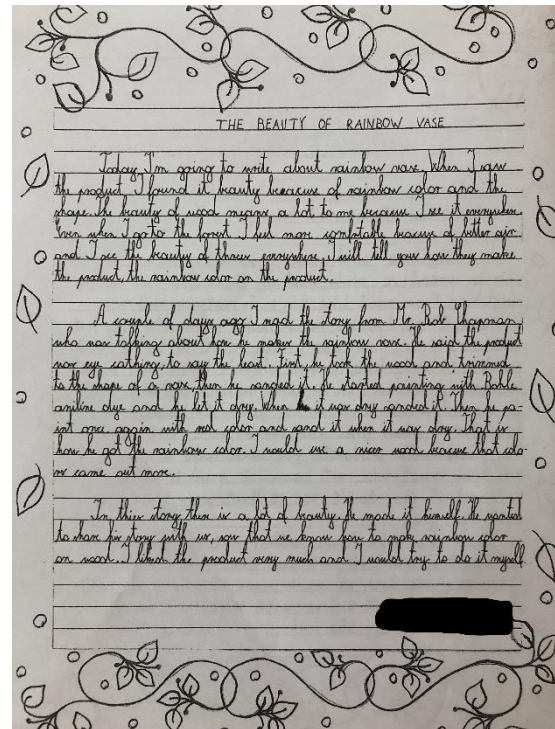 THE BEAUTY OF RAINBOW VASE
Today, I'm going to write about rainbow vase. When I saw
the product I found it beauty beacause of rainbow color and the
shape. The beauty of wood means a lot to me because I see it everywhere.
Even when I go to the forest I feel more comfortable beacuse of better air
and I see the beauty of threes everywhere. I will tell you how they make
the product, the rainbow color on the product.
A couple of days ago I read the story from Mr. Rob Chapman
who was talking about how he makes the rainbow vase. He said the product
was eye cathing, to say the least. First he took the wood and trimmed
to the shape of a vase, then he sanded it. He started painting with Behle
aniline dye and he let it dry. When it was dry sanded it. Then he pa-
int once again with red color and sand it when it was dry. That is
how he got the rainbow color. I would use a nicer wood beacuse that colo-
rs came out more.
In thier story ther is a lot of beauty. He made it himself. He wanted
to share his story with us, now that we know how to make rainbow color
on wood. I liked the product very much and I would try to do it myself.